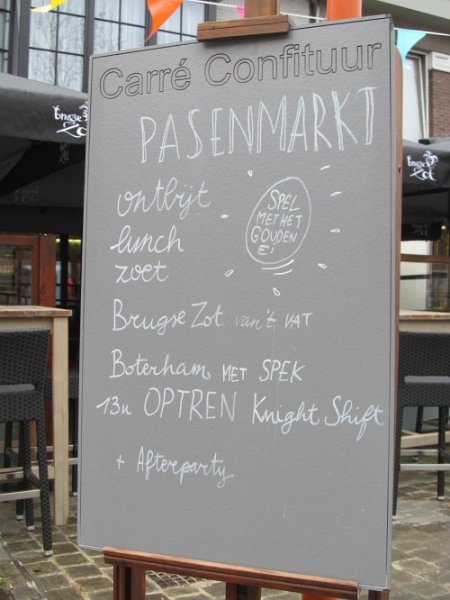 Carré Confituur
PASENMARKT
ontbijt
lunch
zoet
SPEL
MET HET
GOUDEN
EI
Brugse Zot van 't VAT
Boterham MET SPEK
13u OPTREN Knight Shift
+ Afterparty
brugse
Zot
brugse
Zot